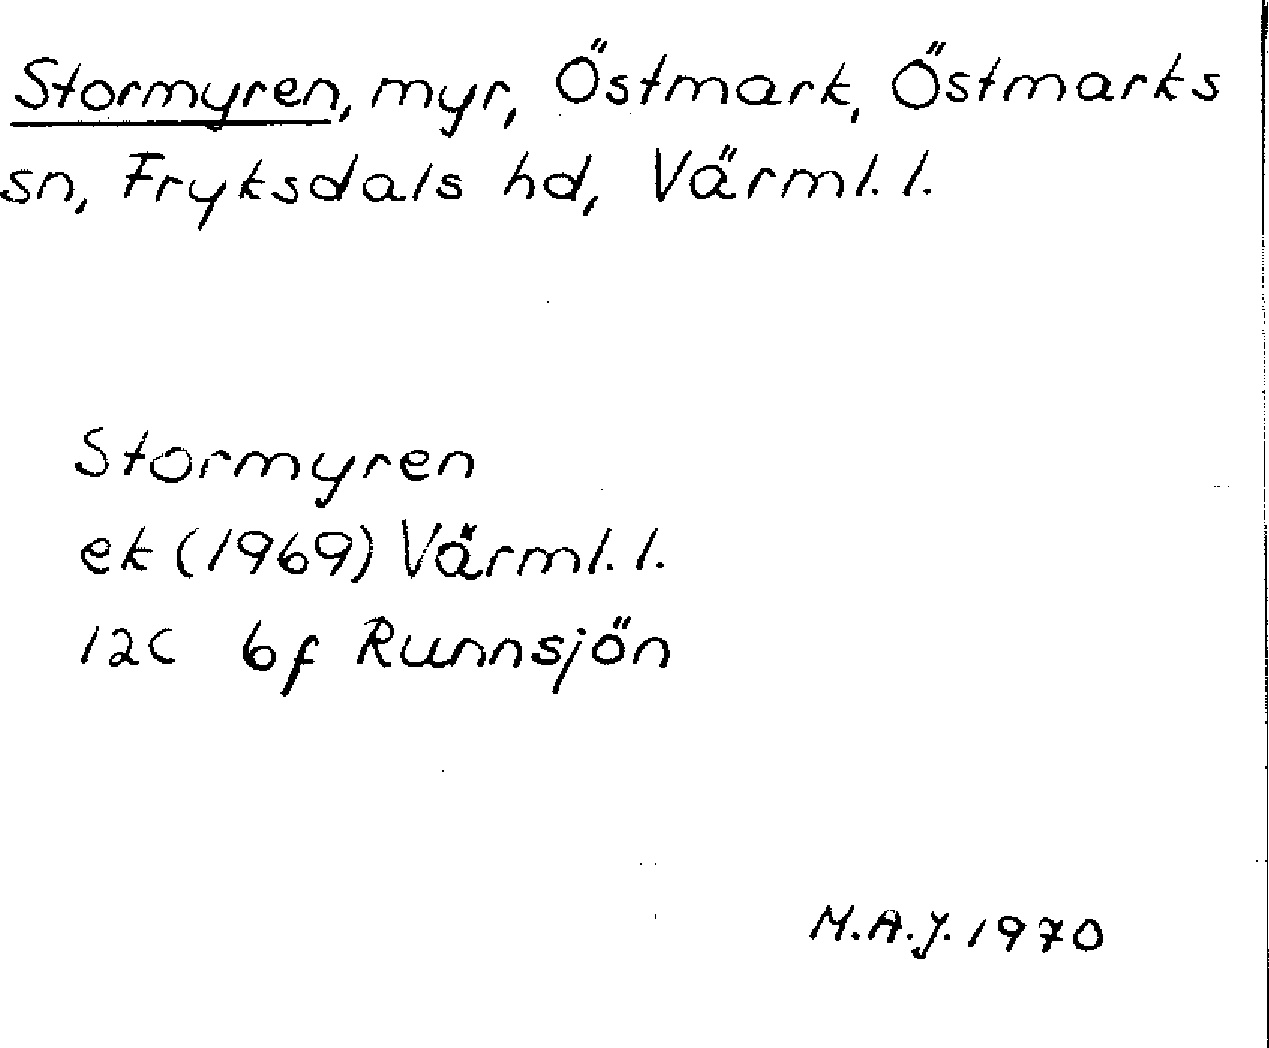 Stormyren, myr, Östmark, Östmarks
sn, Fryksdals hd, Värml. l.
Stormyren
ek (1969) Värml. l.
12C 6f Runnsjön
M.A.J. 1970